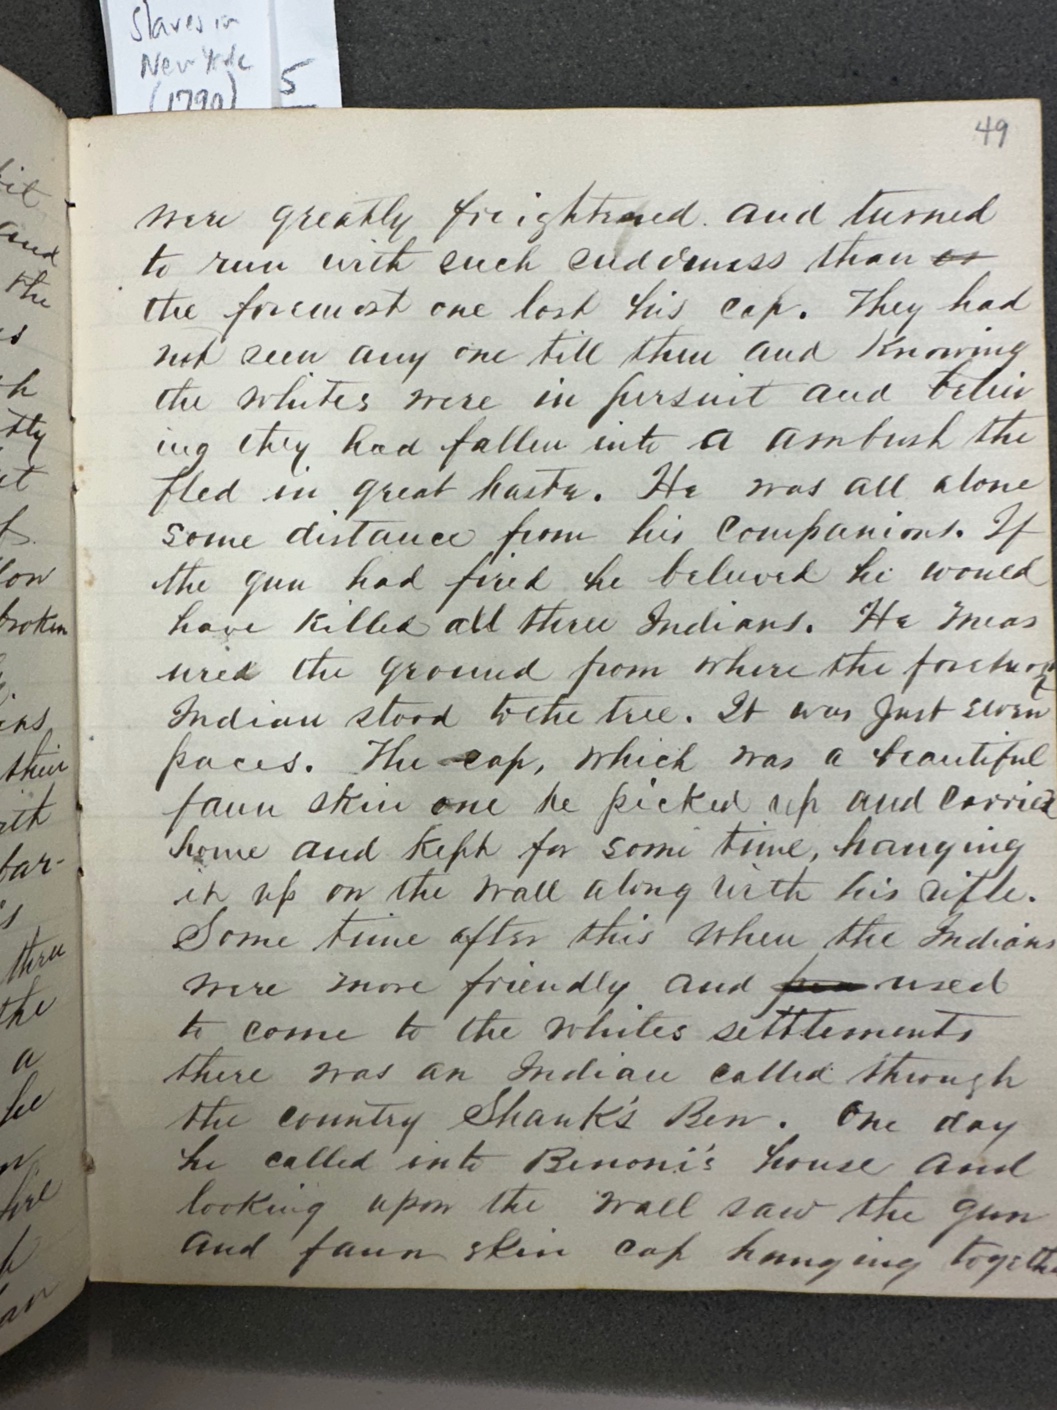 Slaves in
New York
(1790)
5
49
were greatly freightened. and turned
to run with such suddenness than
the foremost one lost his cap. They had
not seen any one till then and Knowing
the whites were in pursuit and believ
ing they had fallen into a ambush the
fled in great haste. He was all alone
some distance from his companions. If
the gun had fired he believed he would
have killed all three Indians. He meas
ured the ground from where the foremost
Indian stood to the tree. It was Just seven
paces. The cap, which was a beautiful
faun skin one he picked up and carried
home and kept for some time, hanging
it up on the wall along with his rifle.
Some time after this when the Indians
were more friendly and used
to come to the whites settlements
there was an Indian called through
the country Shank's Ben. One day
he called into Benoni's house and
looking upon the wall saw the gun
and faun skin cap hanging together
and
the
broken
their
the
a
he